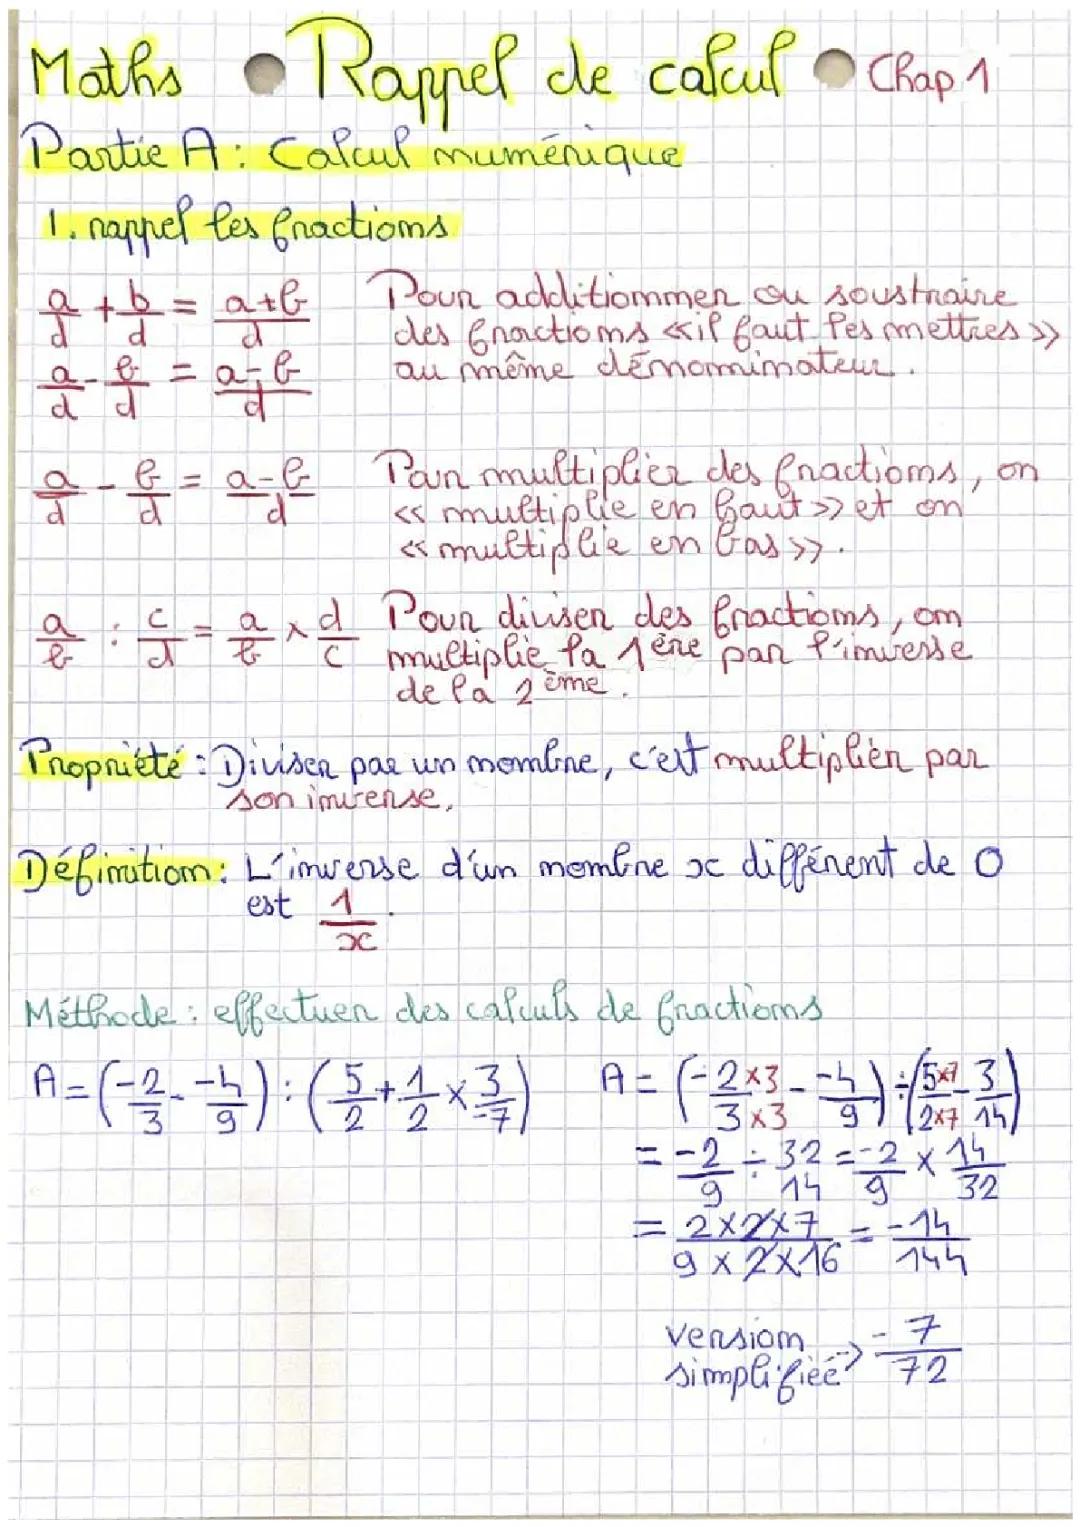 Maths Rappel de calcul Chap 1
Partie A : Calcul numérique
1. rappel les fractions
a/d + b/d = a+b/d Pour additionner ou soustraire
des fractions «il faut les mettres»
a/d - b/d = a-b/d au même dénominateur.
a/d - b/d = a-b/d Pour multiplier des fractions, on
« multiplie en haut » et on
« multiplie en bas ».
a/b : c/d = a/b × d/c Pour diviser des fractions, on
multiplie la 1ère par l'inverse
de la 2ème.
Propriété : Diviser par un nombre, c'est multiplier par
son inverse.
Définition : L'inverse d'un nombre x différent de 0
est 1/x.
Méthode : effectuer des calculs de fractions
A = (-2/3 - -4/9) : (5/2 + 1/2 × 3/-7) A = (-2×3/3×3 - -4/9) ÷ (5×7/2×7 - 3/14)
= -2/9 ÷ 32/14 = -2/9 × 14/32
= 2×2×7/9×2×16 = -14/144
version
simplifiée -> -7/72